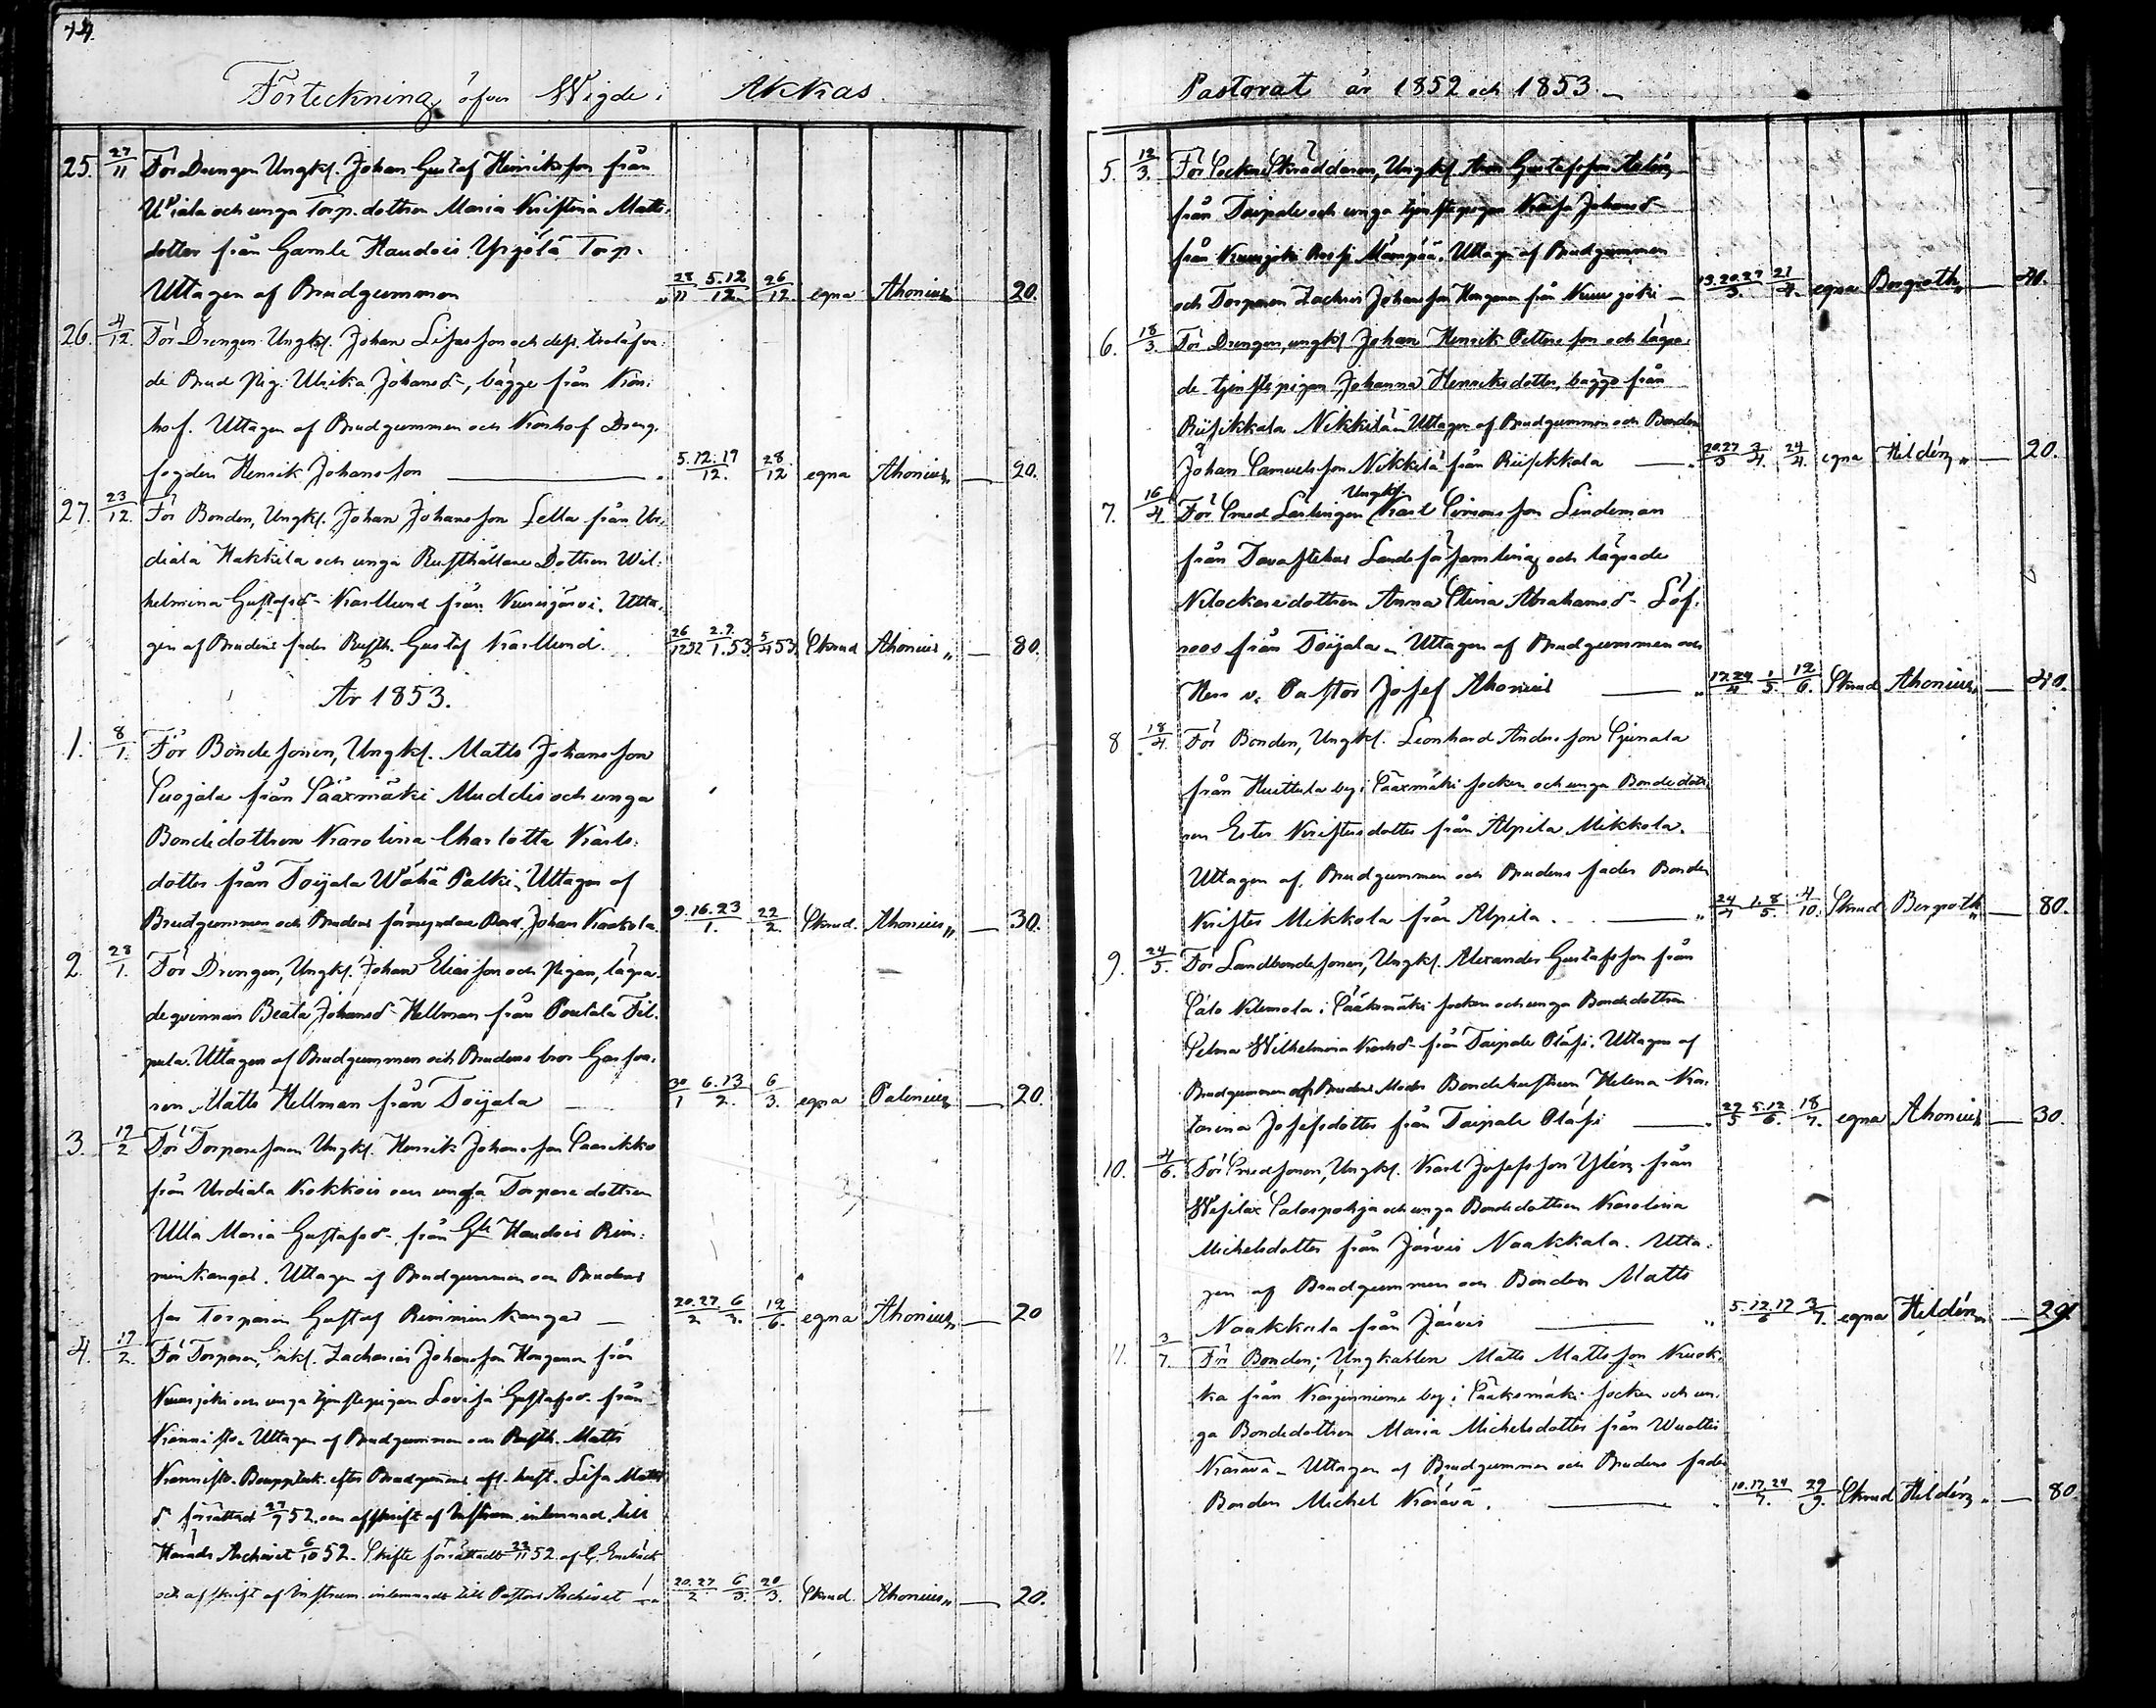 74.
Förteckning öfver Wigde i Akkas
25. 27/11 För Drengen Ungk. Johan Gustaf Henriksson från
Uriala och unga Torp. dottren Maria Kristina Matts-
dotter från Gamle Haudois Yrjölä Torp.
Uttagen af Brudgummen 28/11 5.12/12 26/12 egna Ahonius „ — 20.
26. 4/12 För Drengen Ungk. Johan Lisasson och dess trolofva-
de Brud Pig. Ulrika Johansd-, bägge från Kron-
hof. Uttagen af Brudgummen och Kronhof Dreng-
fogden Henrik Johansson — „ 5.12.19/12. 28/12 egna Ahonius „ — 20.
27. 23/12 För Bonden, Ungk. Johan Johansson Lella från Ur-
diala Hakkila och unga Rusthållare Dottren Wil-
helmina Gustafsd- Karllund från Kurisjärvi. Utta-
gen af Brudens fader Rusth. Gustaf Karllund. 26/12 52 2.9/1.53. 5/4 53 Skrud Ahonius „ — 80.
År 1853.
1. 8/1. För Bondesonen, Ungk. Matts Johansson
Suojala från Sääxmäki Muddis och unga
Bondedottren Karolina Charlotta Karls-
dotter från Toijala Wähä Palki. Uttagen af
Brudgummen och Brudens förmyndare Bond. Johan Kaakola. 9.16.23/1. 22/2. Skrud. Ahonius „ — 30.
2. 28/1. För Drengen, Ungk. Johan Eliasson och Pigan, lägra-
de qvinnan Beata Johansd- Hellman från Pontala Fil-
pula. Uttagen af Brudgummen och Brudens bror Garfva-
ren Matts Hellman från Toijala — 30/1 6.13/2. 6/3. egna Palenius „ — 20.
3. 17/2 För Torparesonen Ungk. Henrik Johansson Saarikko
från Urdiala Kokkois och unga Torpare dottren
Ulla Maria Gustafsd-, från Gle Haudois Rim-
minkangas. Uttagen af Brudgummen och Brudens
far Torparen Gustaf Rimminkangas — 20.27/2 6/3. 12/6. egna Ahonius „ — 20
4. 17/2. För Torparen, Enkl. Zacharias Johansson Hongana från
Kurisjoki och unga tjenstepigan Lovisa Gustafsd- från
Kännistö. Uttagen af Brudgummen och Rusth. Matts
Kännistö. Bouppteck. efter Brudgumens afl. hust. Lisa Matts
d- förrättad 27/9 52. och afskrift af Instrum. inlemnad till
Härads Archivet 6/10 52. Skifte förrättadt 23/11 52 af G. Enebäck
och afskrift af Instrum. inlemnadt till Pastors Archivet — „ 20.27/2 6/3. 20/3. Skrud. Ahonius „ — 20.
Pastorat år 1852 och 1853. —
5. 12/3. För Sockne Skräddaren, Ungk. Gustafsson
från Taipale och unga tjenstepigan Kaisa Johansd-
från Kurisjoki Mämpää. Uttagen af Brudgummen
och Torparen Zachris Johansson Hongana från Kurisjoki — 13.20.27/3. 21/4. egna Bergroth „ — 40.
6. 18/3. För Drengen, ungk. Johan Henrik Petersson och lägra-
de tjenstepigan Johanna Henriksdotter, bägge från
Riisikkala Nikkilä. Uttagen af Brudgummen och Bonden
Johan Samuelsson Nikkilä från Riisikkala — „ 20.27/3 3/4. 24/4. egna Hildén „ — 20.
7. 16/4 För Smed Lärlingen Ungk. Karl Simonsson Lindeman
från Tavastehus Landsförsamling och lägrade
Klockaredottren Anna Stina Abrahamsd- Löf-
roos från Toijala. Uttagen af Brudgummen och
Herr v. Pastor Josef Ahonius — „ 17.24/4 1/5. 12/6. Skrud Ahonius „ — 40.
8 18/4. För Bonden, Ungk. Leonhard Andersson Ojunala
från Huittula by i Sääxmäki socken och unga Bondedott-
ren Ester Kristersdotter från Alpila Mikkola.
Uttagen af Brudgummen och Brudens fader Bonden
Krister Mikkola från Alpila. — „ 24/4 1.8/5. 4/10. Skrud Bergroth „ — 80.
9. 24/5. För Landbondesonen, Ungk. Alexander Gustafsson från
Salo Klemola i Sääksmäki socken och unga Bondedottren
Selma Wilhelmina Karlsd- från Taipale Oläsi. Uttagen af
Brudgummen och Brudens Moder Bondehustrun Helena Ka-
tarina Josefsdotter från Taipale Oläsi — „ 29/5 5.12/6. 18/7. egna Ahonius „ — 30.
10. 4/6. För Smedsonen, Ungk. Karl Josefsson Ylén från
Wesilax Salospohja och unga Bondedottren Karolina
Michelsdotter från Järvis Naakkala. Utta-
gen af Brudgummen och Bonden Matts
Naakkala från Järvis — „ 5.12.17/6 3/7. egna Hildén „ — 20.
11. 3/7. För Bonden, Ungkarlen Matts Mattsson Kuok-
ka från Karjenniemi by i Sääksmäki socken och un-
ga Bondedottren Maria Michelsdotter från Wuolteis
Kärävä. Uttagen af Brudgummen och Brudens fader
Bonden Michel Kärävä. — „ 10.17.24/7. 29/9. Skrud Hildén „ — 80.